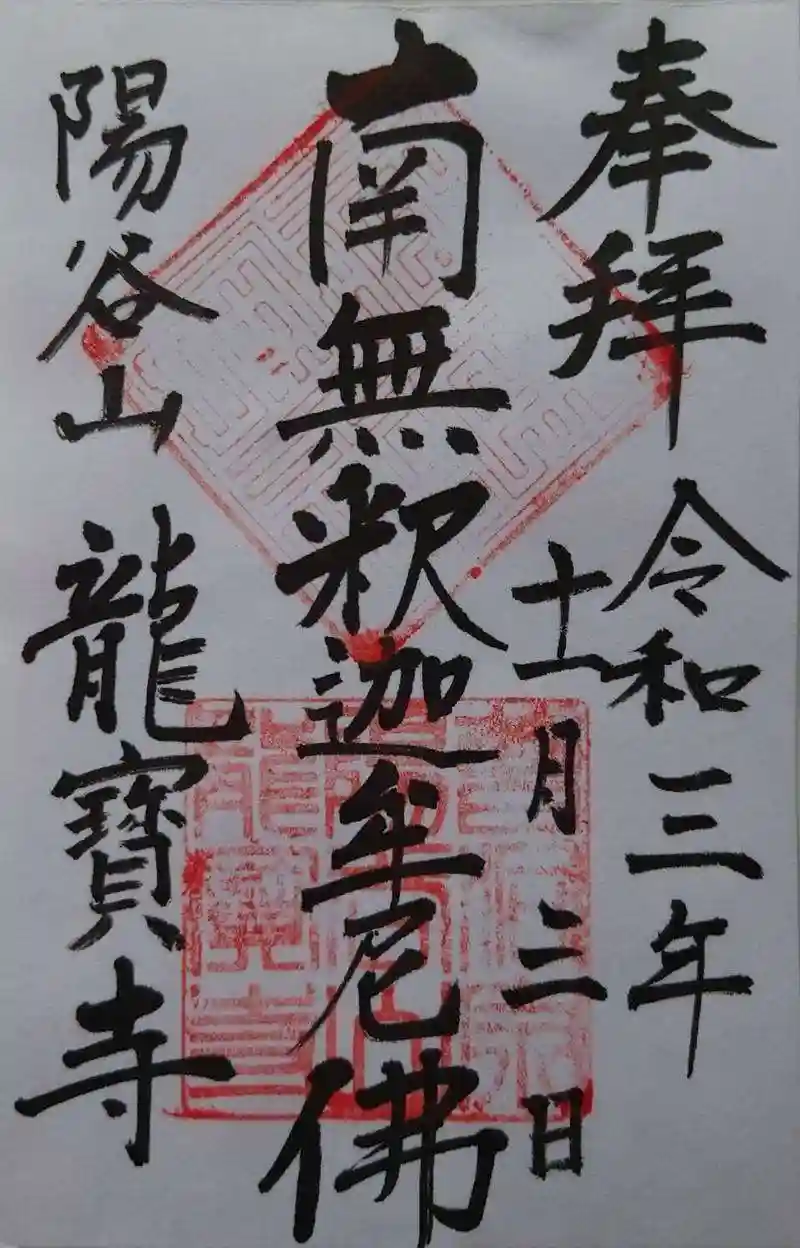 奉拝 令和三年
十一月三日
南無釈迦牟尼佛
陽谷山 龍寶寺